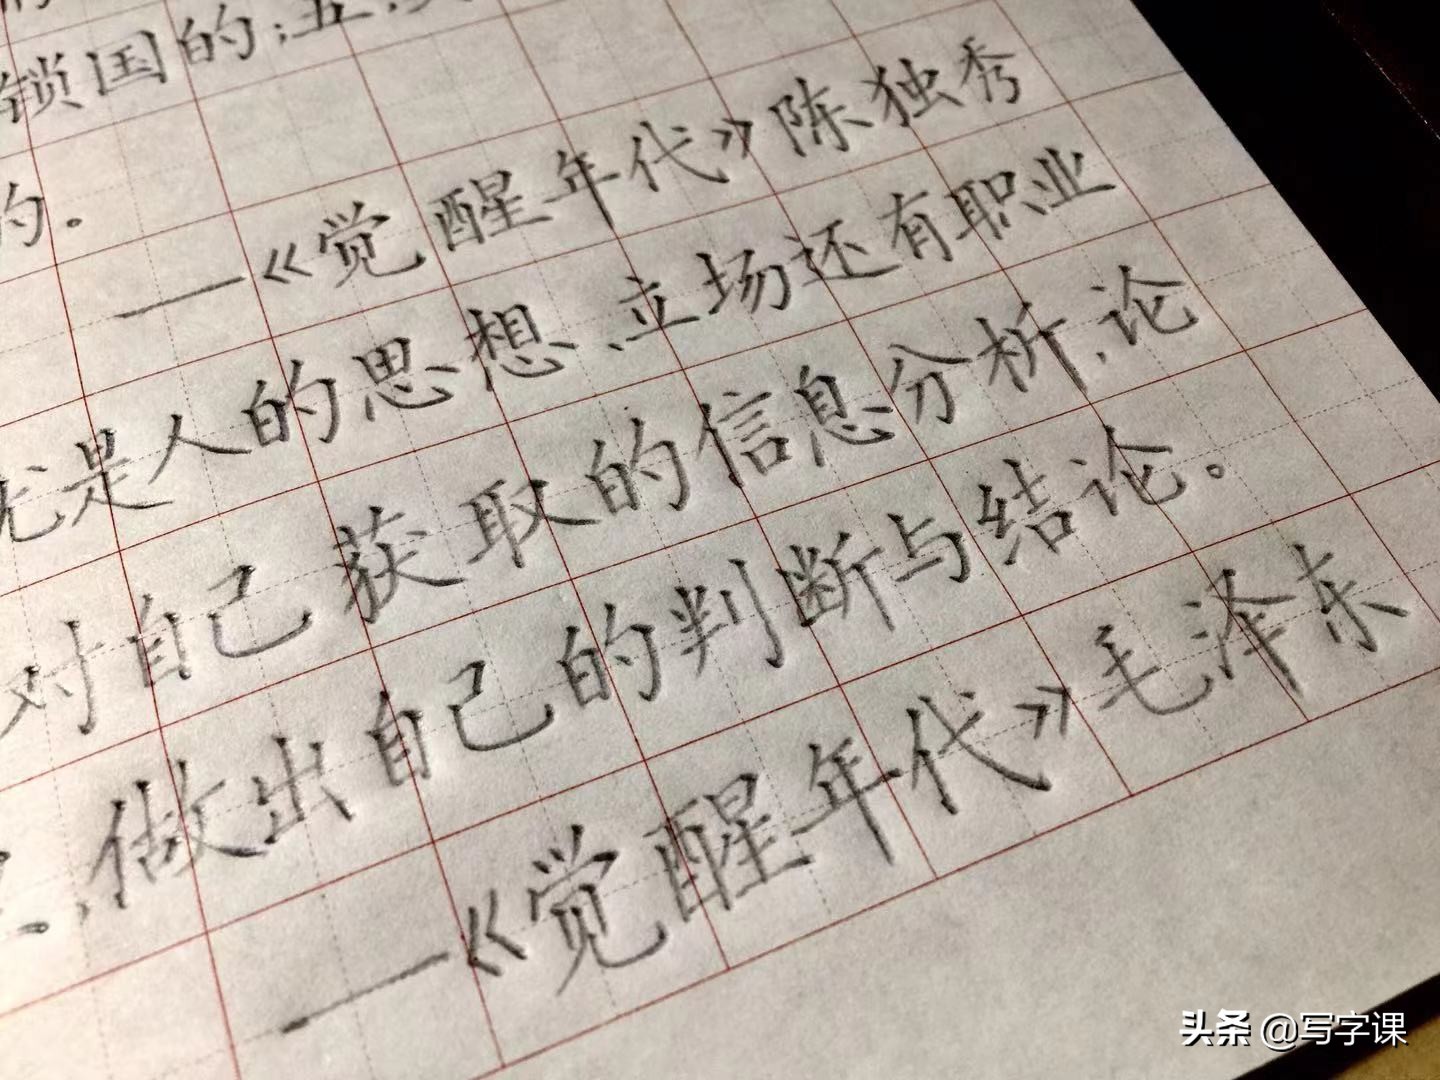 锁国的；五，
的。
——《觉醒年代》陈独秀
就是人的思想、立场还有职业
对自己获取的信息分析，论
，做出自己的判断与结论。
——《觉醒年代》毛泽东
头条 @写字课